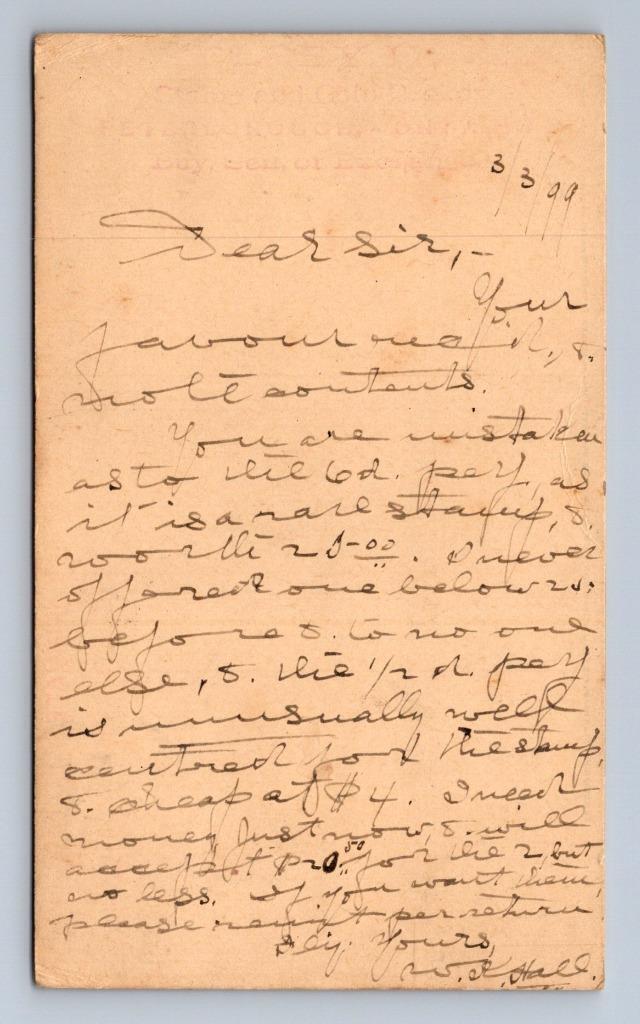 Buy, Sell, or Exchange
3/3/99
Dear Sir,-
Your
favour rec'd., &
note contents.
You are mistaken
as to the 6d. perf, as
it is a rare stamp, &
worth 25.00. I never
offered one below 25.
before & to no one
else, & the 1/2 d. perf
is unusually well
centred for the stamp,
& cheap at $4. I need
money just now, & will
accept for the 2 but
no less. If you want them,
please remit per return
Yours,
Hall.